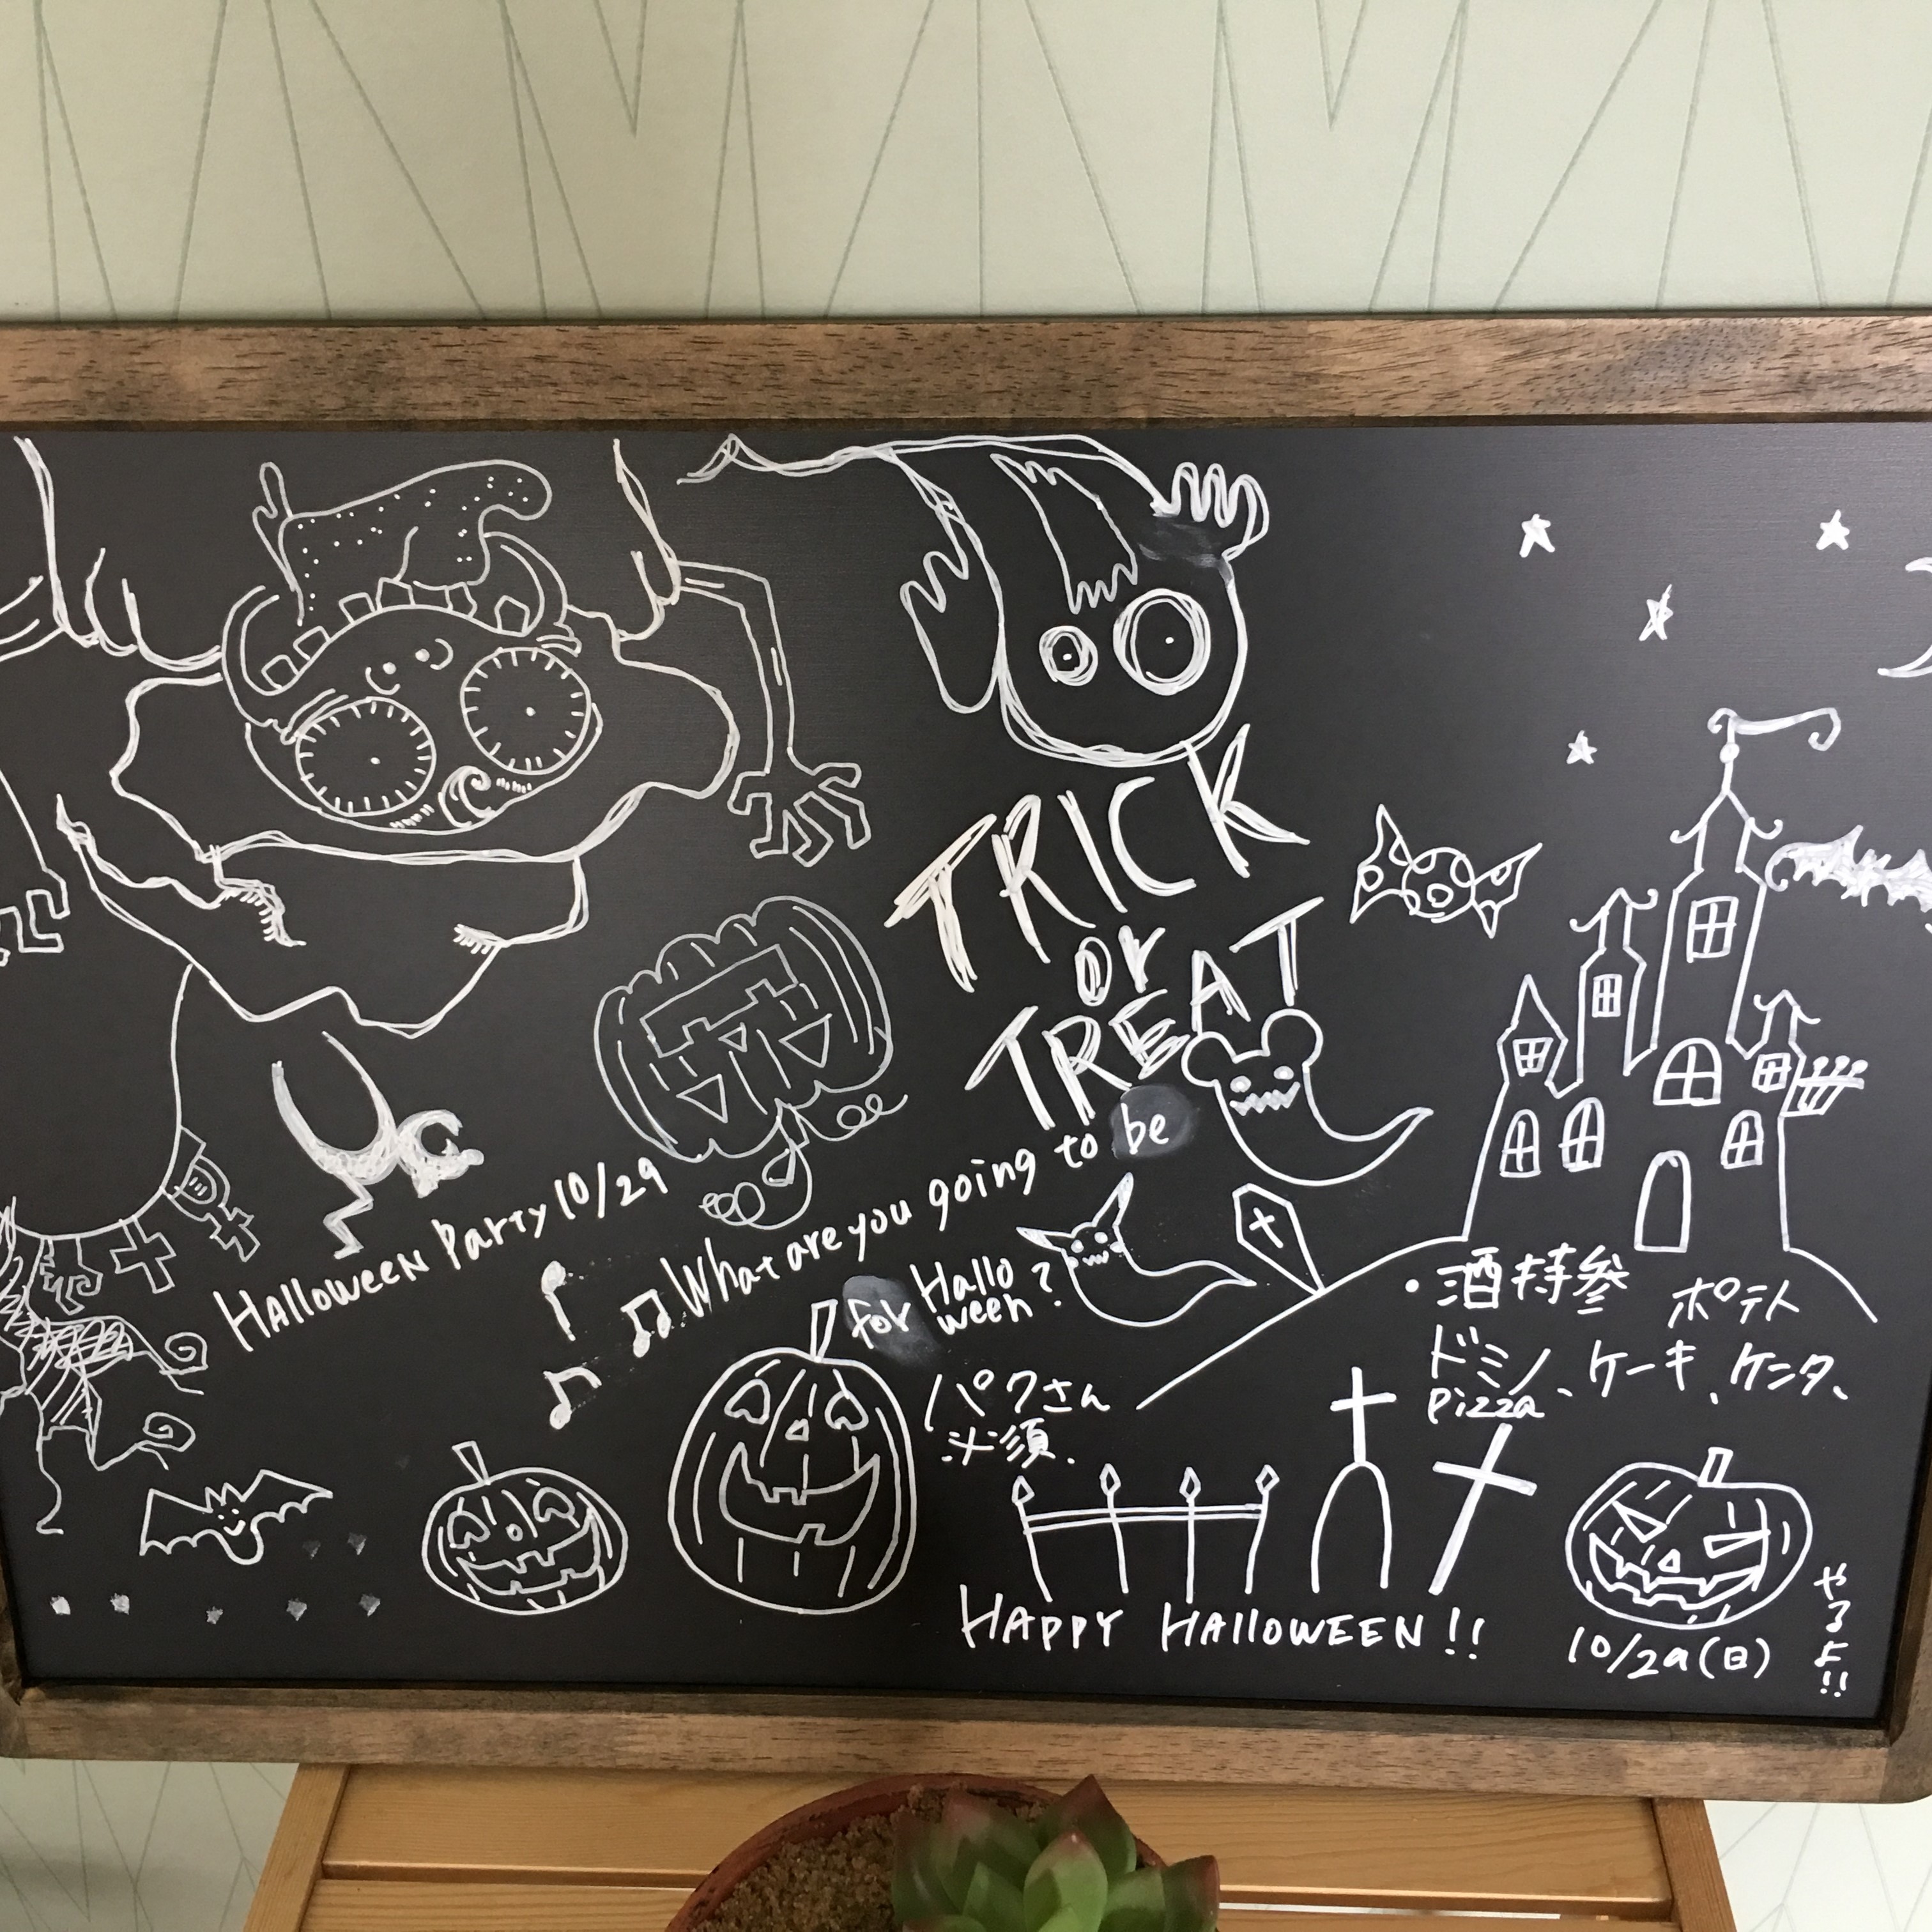 TRICK
or
TREAT
Halloween Party 10/29
What are you going to be
for Hallo
ween?
・酒持参 ポテト
ドミノ、ケーキ、ケンタ、
Pizza
パクさん
必須.
HAPPY HALLOWEEN!!
10/29(日)
やるよ!!